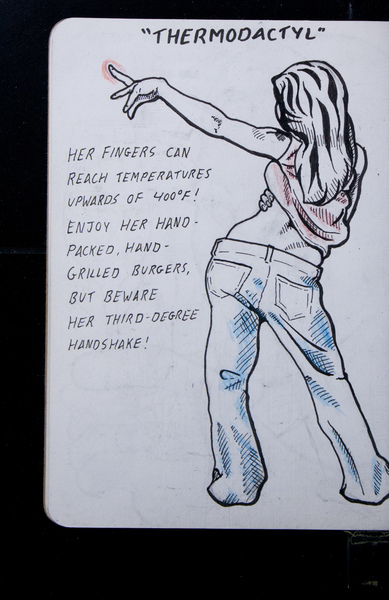 "THERMODACTYL"
HER FINGERS CAN
REACH TEMPERATURES
UPWARDS OF 400°F!
ENJOY HER HAND-
PACKED, HAND-
GRILLED BURGERS,
BUT BEWARE
HER THIRD-DEGREE
HANDSHAKE!